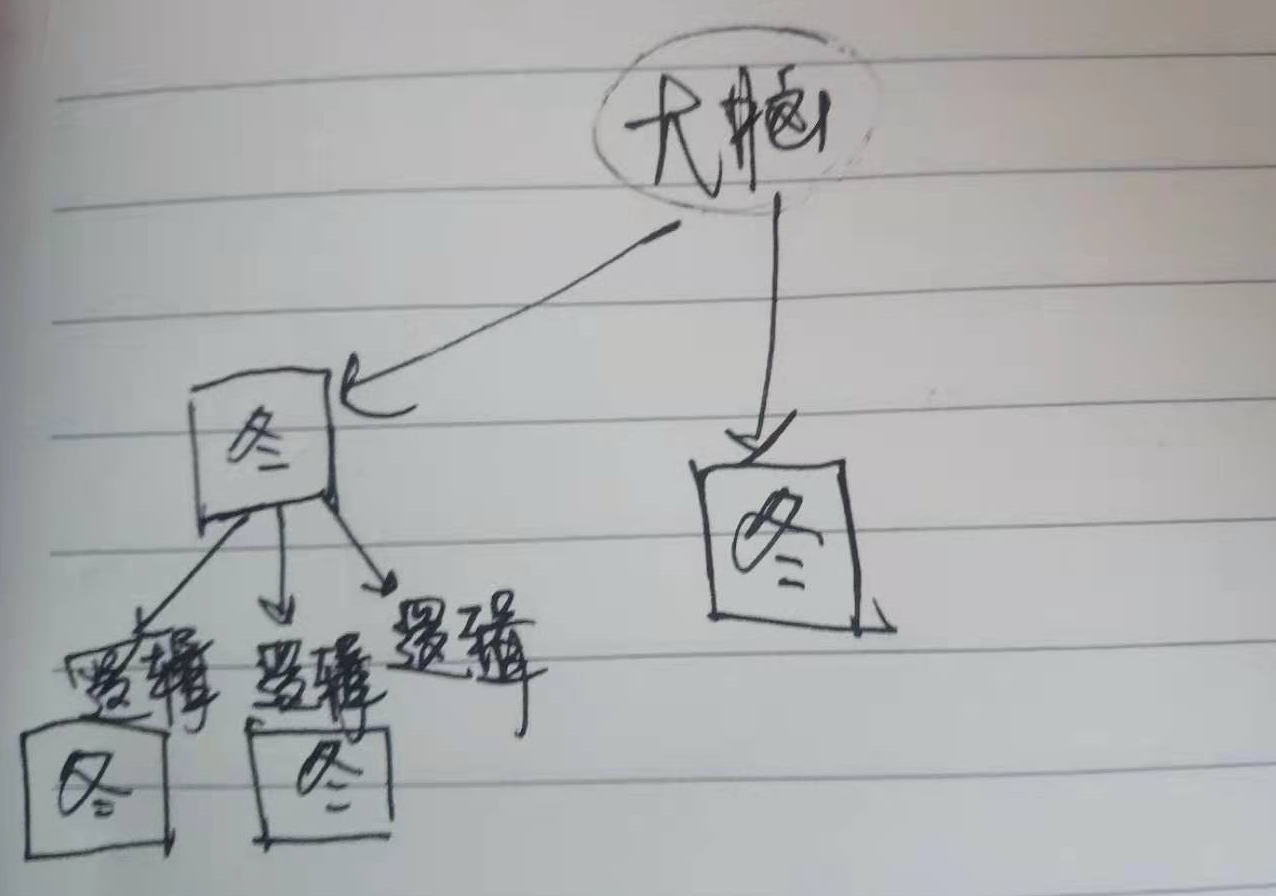 大脑
冬
冬
逻辑 逻辑 逻辑
冬 冬